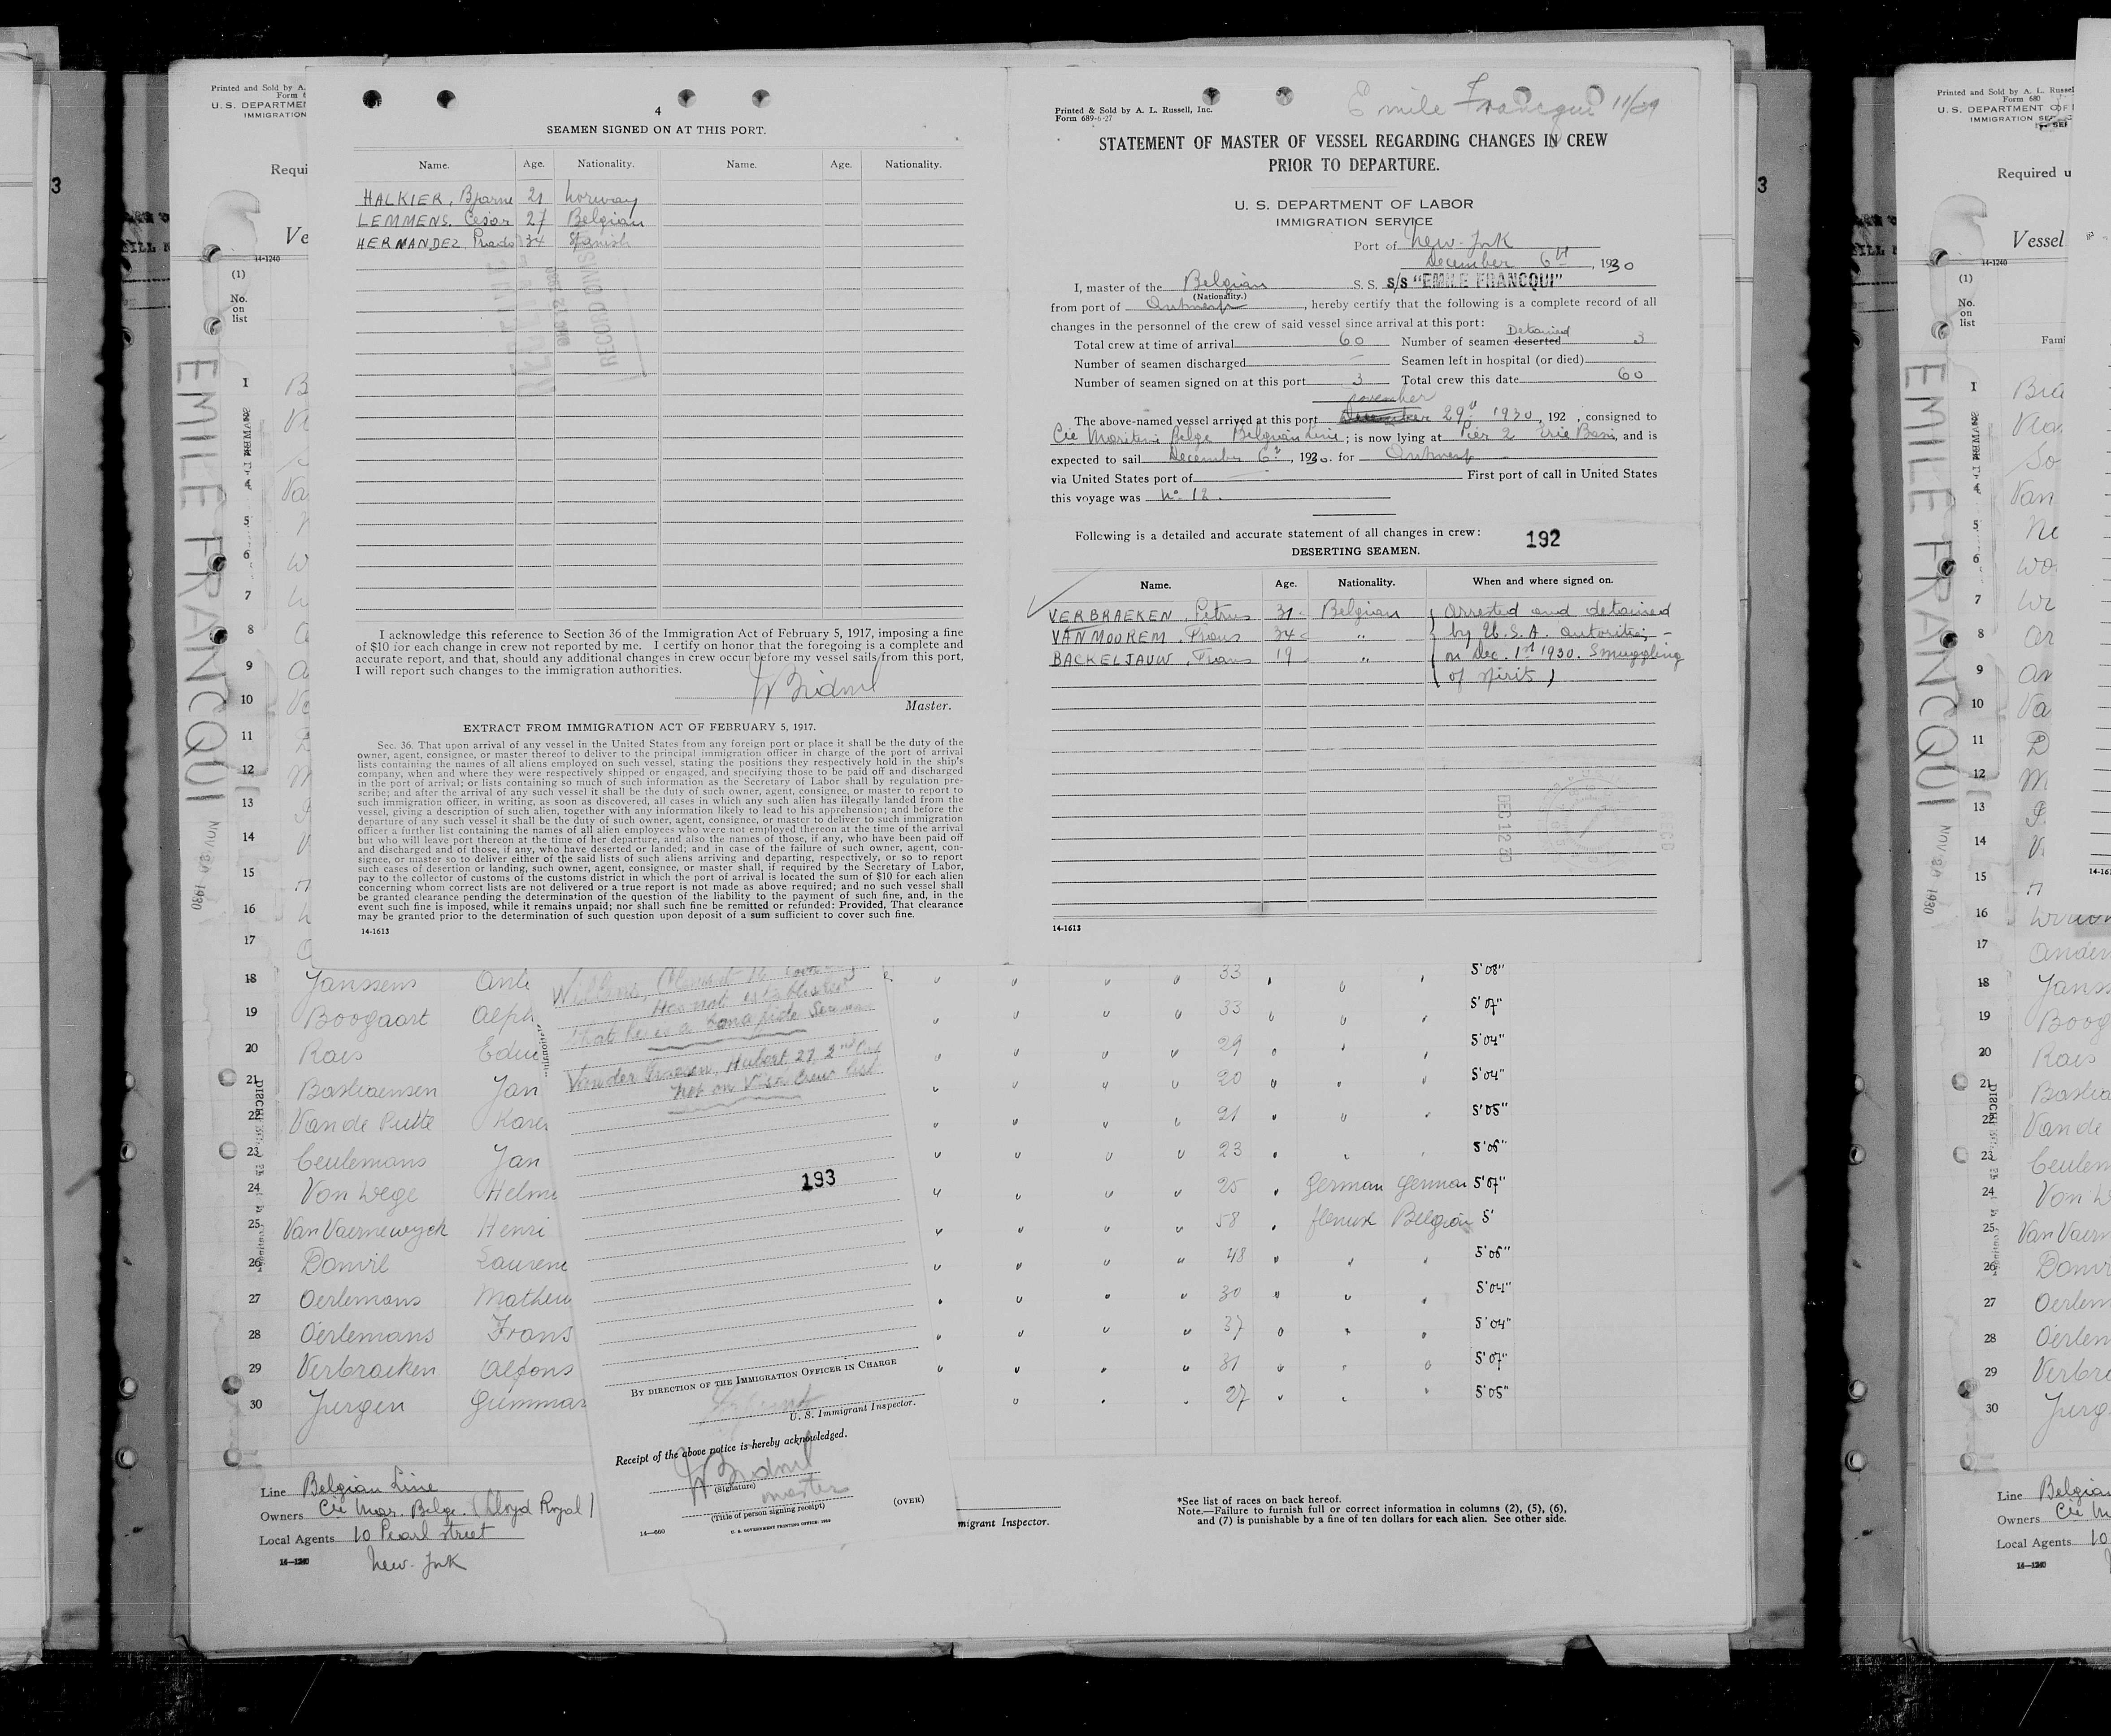 3
Printed and Sold by A.
Form 6
U. S. DEPARTMEN
IMMIGRATION
Requi
Ve
14-1240
(1)
No.
on
list
EMILE FRANCQUI
NOV 29 1930
1
4
5
6
7
8
9
10
11
12
13
14
15
16
17
4
SEAMEN SIGNED ON AT THIS PORT.
Name. Age. Nationality. Name. Age. Nationality.
HALKIER, Bjarne 21 Norway
LEMMENS. Cesar 27 Belgian
HERMANDEZ, Prado 34 Spanish
RECORD DIVISION
I acknowledge this reference to Section 36 of the Immigration Act of February 5, 1917, imposing a fine
of $10 for each change in crew not reported by me. I certify on honor that the foregoing is a complete and
accurate report, and that, should any additional changes in crew occur before my vessel sails from this port,
I will report such changes to the immigration authorities.
Master.
EXTRACT FROM IMMIGRATION ACT OF FEBRUARY 5, 1917.
Sec. 36. That upon arrival of any vessel in the United States from any foreign port or place it shall be the duty of the
owner, agent, consignee, or master thereof to deliver to the principal immigration officer in charge of the port of arrival
lists containing the names of all aliens employed on such vessel, stating the positions they respectively hold in the ship's
company, when and where they were respectively shipped or engaged, and specifying those to be paid off and discharged
in the port of arrival; or lists containing so much of such information as the Secretary of Labor shall by regulation pre-
scribe; and after the arrival of any such vessel it shall be the duty of such owner, agent, consignee, or master to report to
such immigration officer, in writing, as soon as discovered, all cases in which any such alien has illegally landed from the
vessel, giving a description of such alien, together with any information likely to lead to his apprehension; and before the
departure of any such vessel it shall be the duty of such owner, agent, consignee, or master to deliver to such immigration
officer a further list containing the names of all alien employees who were not employed thereon at the time of the arrival
but who will leave port thereon at the time of her departure, and also the names of those, if any, who have been paid off
and discharged and of those, if any, who have deserted or landed; and in case of the failure of such owner, agent, con-
signee, or master so to deliver either of the said lists of such aliens arriving and departing, respectively, or so to report
such cases of desertion or landing, such owner, agent, consignee, or master shall, if required by the Secretary of Labor,
pay to the collector of customs of the customs district in which the port of arrival is located the sum of $10 for each alien
concerning whom correct lists are not delivered or a true report is not made as above required; and no such vessel shall
be granted clearance pending the determination of the question of the liability to the payment of such fine, and, in the
event such fine is imposed, while it remains unpaid; nor shall such fine be remitted or refunded: Provided, That clearance
may be granted prior to the determination of such question upon deposit of a sum sufficient to cover such fine.
14-1613
Emile Francqui 11/29
Printed & Sold by A. L. Russell, Inc.
Form 689-6-27
STATEMENT OF MASTER OF VESSEL REGARDING CHANGES IN CREW
PRIOR TO DEPARTURE.
U. S. DEPARTMENT OF LABOR
IMMIGRATION SERVICE
Port of New-York
December 6th, 1930
I, master of the Belgian S. S. s/s "EMILE FRANCQUI"
(Nationality.)
from port of Antwerp, hereby certify that the following is a complete record of all
changes in the personnel of the crew of said vessel since arrival at this port:
Detained
Total crew at time of arrival 60 Number of seamen deserted 3
Number of seamen discharged — Seamen left in hospital (or died)
Number of seamen signed on at this port 3 Total crew this date 60
November
The above-named vessel arrived at this port December 29th 1930, 192 , consigned to
Cie Maritime Belge Belgian Line; is now lying at Pier 2 Erie Basin, and is
expected to sail December 6th, 1930. for Antwerp
via United States port of First port of call in United States
this voyage was No 12.
Following is a detailed and accurate statement of all changes in crew: 192
DESERTING SEAMEN.
Name. Age. Nationality. When and where signed on.
VERBRAEKEN, Petrus 31 Belgian ( Arrested and detained
VANMOOREM, Frans 34 " by U.S.A. autorities -
BACKELJAUW, Frans 19 " ( on Dec. 1st 1930. Smuggling
( of spirit )
DEC 12 30
14-1613
18 Janssens 33 5'08"
19 Boogaart Alph 33 5'07"
20 Rais Edu 29 5'04"
21 Bastiaensen Jan 20 5'04"
22 Van de Putte Karel 21 5'05"
23 Ceulemans Jan 23 5'06"
24 Von Wege Helm 25 German German 5'07"
25 Van Vaernewyck Henri 58 flemish Belgian 5'
26 Danvil Laurent 48 5'06"
27 Oerlemans Mathieu 30 5'04"
28 Oerlemans Frans 37 5'04"
29 Verbraeken Alfons 31 5'07"
30 Jurgen Gummar 27 5'05"
Has not established
that he is a bona fide Seaman
Hubert, 27, 2nd
not on Visa Crew list
193
BY DIRECTION OF THE IMMIGRATION OFFICER IN CHARGE
U. S. Immigrant Inspector.
Receipt of the above notice is hereby acknowledged.
(Signature)
master
(Title of person signing receipt)
(OVER)
14—660
U. S. GOVERNMENT PRINTING OFFICE: 1929
Line Belgian Line
Owners Cie Mar. Belge. (Lloyd Royal)
Local Agents 10 Pearl street
14—1240 New-York
migrant Inspector.
*See list of races on back hereof.
Note.—Failure to furnish full or correct information in columns (2), (5), (6),
and (7) is punishable by a fine of ten dollars for each alien. See other side.
3
Printed and Sold by A. L. Russel
Form 680
U. S. DEPARTMENT OF
IMMIGRATION SE
Required u
Vessel
14-1240
(1)
No.
on
list
Fami
EMILE FRANCQUI
NOV 29 1930
1
4
5
6
7
8
9
10
11
12
13
14
15
16
17 Ander
18 Janss
19 Boog
20 Rais
21 Bastia
22 Van de
23 Ceulem
24 Von W
25 Van Vaern
26 Danv
27 Oerlem
28 Oerlem
29 Verbra
30 Jurg
Line Belgian
Owners Cie M
Local Agents 10
14—1240